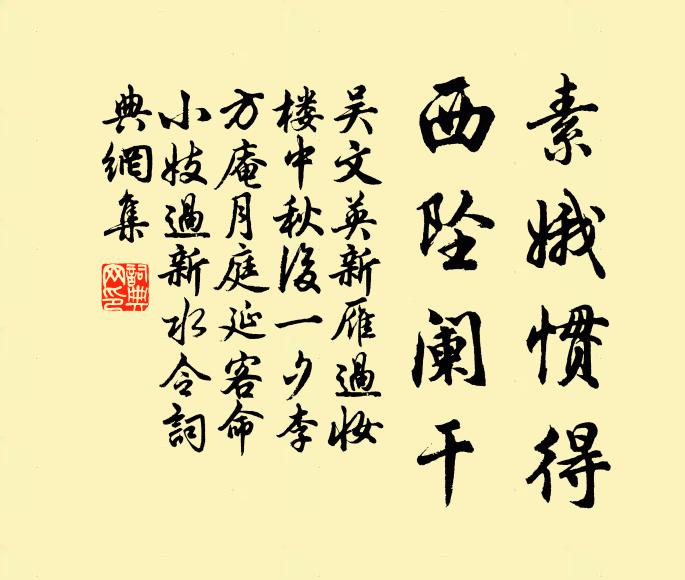 素娥惯得
西坠阑干
吴文英新雁過妆
楼中秋後一夕李
方庵月庭延客命
小妓過新水令詞
典網集
詞典
网印